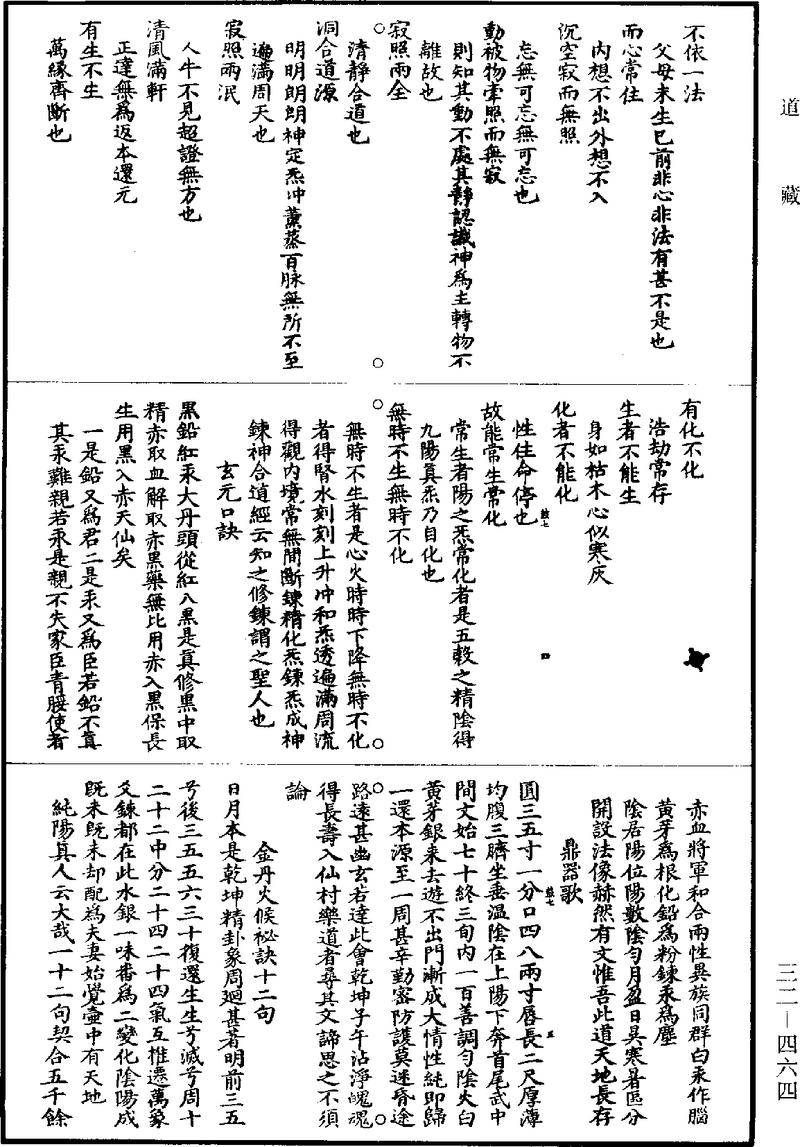 道藏
不依一法
父母未生已前非心非法有甚不是也
而心常住
内想不出外想不入
沉空寂而無照
忘無可忘無可忘也
動被物牽照而無寂
則知其動不處其靜認識神爲主轉物不
離故也
寂照兩全
清靜合道也
洞合道源
明明朗朗神定炁冲薰蒸百脉無所不至
遍滿周天也
寂照兩泯
人牛不見超證無方也
清風滿軒
正達無爲返本還元
有生不生
萬緣齊斷也
有化不化
浩劫常存
生者不能生
身如枯木心似寒灰
化者不能化
性住命停也
故能常生常化
常生者陽之炁常化者是五穀之精陰得
九陽真炁乃自化也
無時不生無時不化
無時不生者是心火時時下降無時不化
者得腎水刻刻上升冲和炁透遍滿周流
得觀内境常無間斷鍊精化炁鍊炁成神
鍊神合道經云知之修鍊謂之聖人也
玄元口訣
黑鉛紅汞大丹頭從紅入黑是真修黑中取
精赤取血解取赤黑藥無比用赤入黑保長
生用黑入赤天仙矣
一是鉛又爲君二是汞又爲臣若鉛不真
其汞難親若汞是親不失家臣青腰使者
赤血將軍和合兩性異族同群白汞作腦
黄芽爲根化鉛爲粉鍊汞爲塵
陰居陽位陽數陰勻月盈日昃寒暑區分
開設法像赫然有文惟吾此道天地長存
鼎器歌
圓三五寸一分口四八兩寸唇長二尺厚薄
均腹三臍坐垂温陰在上陽下奔首尾武中
間文始七十終三旬内一百善調勻陰火白
黄芽銀來去遊不出門漸成大情性純即歸
一還本源至一周甚辛勤密防護莫迷昏途
路遠甚幽玄若達此會乾坤子午沾淨魄魂
得長壽入仙村樂道者尋其文諦思之不須
論
金丹火候祕訣十二句
日月本是乾坤精卦象周廻甚著明前三五
兮後三五五六三十復還生生兮滅兮周十
二十二中分二十四二十四氣互推遷萬象
爻鍊都在此水銀一味番爲二變化陰陽成
既未既未却配爲夫妻始覺壷中有天地
純陽真人云大哉一十二句契合五千餘
三二—四六四